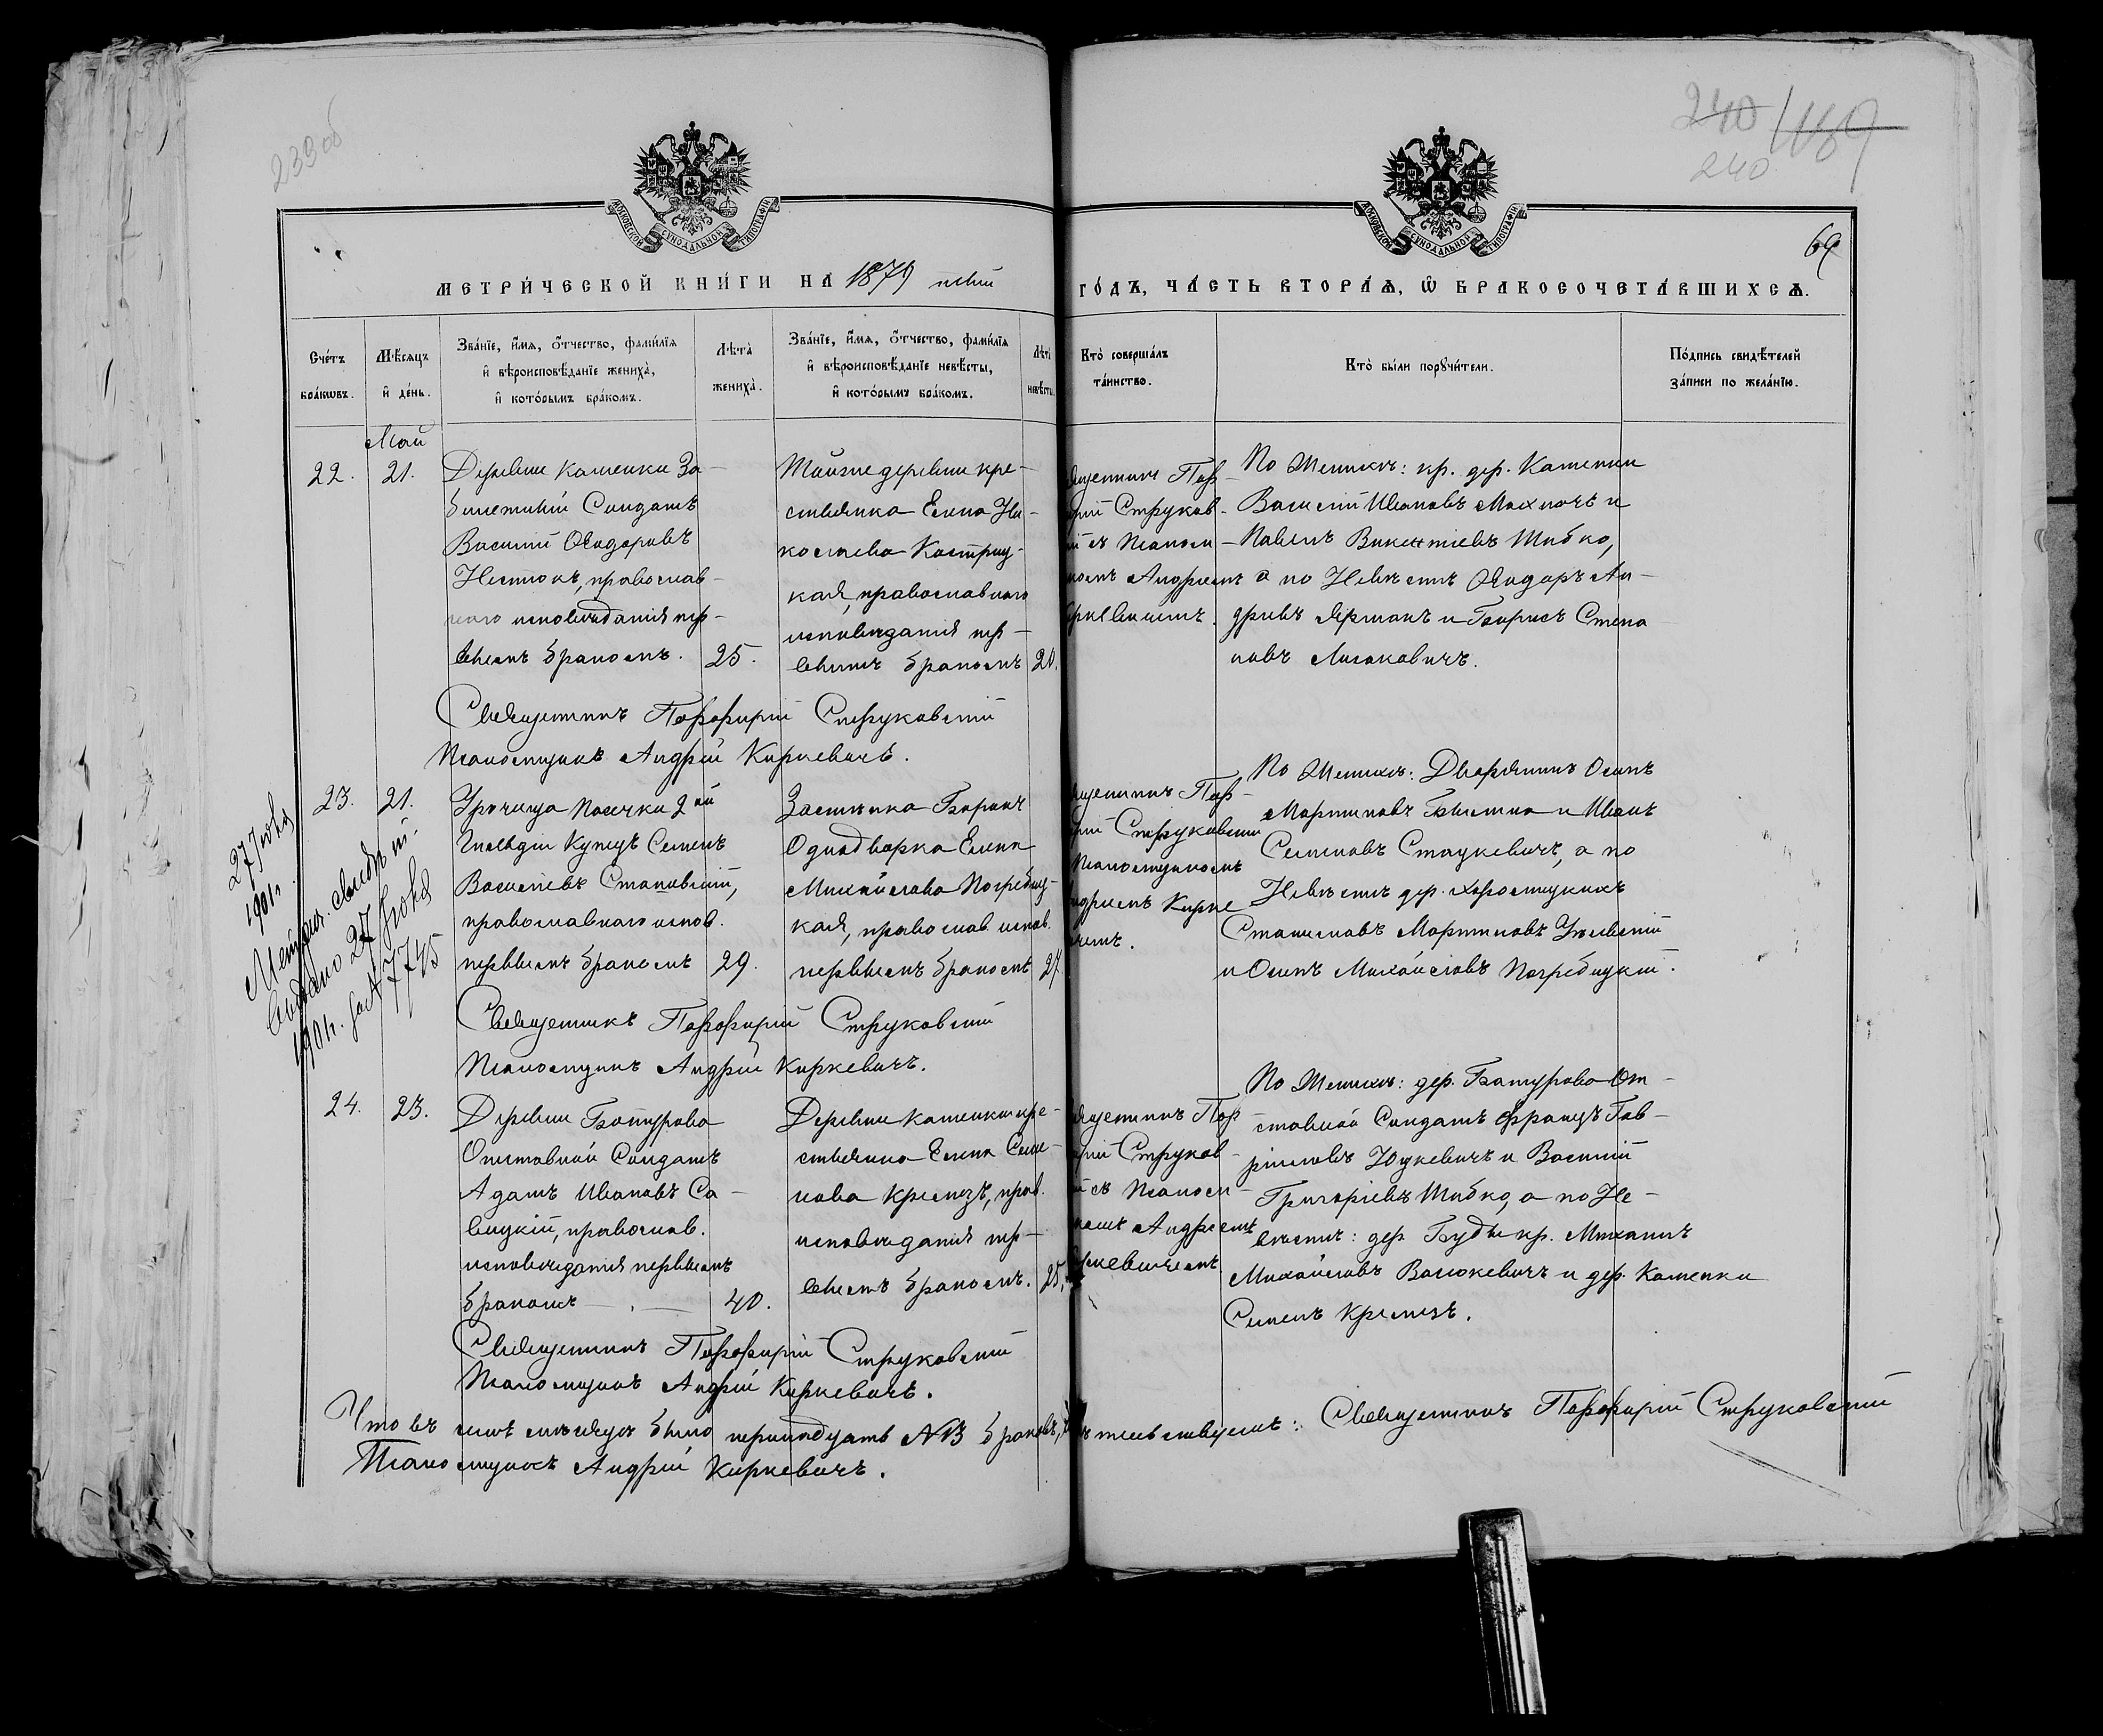 239 об
240/189
240
69
МОСКОВСКОЙ СѴНОДАЛЬНОЙ ТИПОГРАФІИ
МОСКОВСКОЙ СѴНОДАЛЬНОЙ ТИПОГРАФІИ
МЕТРИ́ЧЕСКОЙ КНИ́ГИ НА 1879 ГО́ДЪ, ЧА́СТЬ ВТОРА́Ѧ, Ѡ БРАКОСОЧЕТА́ВШИХСѦ.
Счéтъ
брáкѡвъ.
Мѣ́сѧцъ
и҆ дéнь.
Звáнїе, и҆́мѧ, ѻ҆́тчество, фами́лїѧ
и҆ вѣроисповѣ́данїе женихà,
и҆ котóрымъ брáкомъ.
Лѣ́тà
женихà.
Звáнїе, и҆́мѧ, ѻ҆́тчество, фами́лїѧ
и҆ вѣроисповѣ́данїе невѣ́сты,
и҆ котóрымъ брáкомъ.
Лѣ́тà
невѣ́сты
Ктò совершáлъ
тáинство.
Ктò бы́ли порꙋчи́тели.
Пóдпись свидѣ́телей
зáписи по желáнїю.
Май
22.
21.
Деревни Каменки За-
билетный Солдатъ
Василій Ѳеодоровъ
Нестюкъ, православ-
наго исповѣданія пер-
вымъ бракомъ.
25.
Тойже деревни кре-
стьянка Елена Ни-
колаева Кострицкая, православнаго
исповѣданія пер-
вымъ бракомъ
20.
ященникъ Пор-
фирій Струков-
ій съ Псалом-
комъ Андреемъ
иркевичемъ.
По Женихѣ: кр. дер. Каменки
Василій Ивановъ Махначъ и
Павелъ Викентіевъ Шибко,
а по Невѣстѣ Ѳеодоръ Ан-
дреевъ Ярмакъ и Борисъ Степа
новъ Лисаковичъ.
Священникъ Порфирій Струковскій
Псаломщикъ Андрей Киркевичъ.
27 Іюня
1901 г.
Метрич. свидѣт.
выдано 27 Іюня
1901 г. за № 7745
23.
21.
Урочища Посечки 2ой
Гильдіи Купецъ Семенъ
Васильевъ Становскій,
православнаго испов.
первымъ бракомъ
29.
Застѣнка Борокъ
Однодворка Елена
Михайлова Погребиц-
кая, православ. испов.
первымъ бракомъ
27.
ященникъ Пор-
фирій Струковскій
Псаломщикомъ
ндреемъ Кирке
ичемъ.
По Женихѣ: Дворянинъ Осипъ
Мартиновъ и Иванъ
Семеновъ Стацкевичъ, а по
Невѣстѣ дер.
Станиславъ Мартиновъ
и Осипъ Михайловъ Погребицкій.
Священникъ Порфирій Струковскій
Псаломщикъ Андрей Киркевичъ.
24.
23.
Деревни Батурова
Отставной Солдатъ
Адамъ Ивановъ Са-
вицкій, православ.
исповѣданія первымъ
бракомъ
40.
Деревни Каменки кре-
стьянка Елена Семе-
нова Кремезъ, прав.
исповѣданія пер-
вымъ бракомъ.
25.
ященникъ Пор
фирій Струков-
ій съ Псалом-
комъ Андреемъ
иркевичемъ.
По Женихѣ: дер. Батурова От-
ставной Солдатъ Францъ Гав-
ріиловъ Юцкевичъ и Василій
Григорьевъ Шибко, а по Не-
вѣстѣ: дер. Буды кр. Михаилъ
Михайловъ Валюкевичъ и дер. Каменки
Семенъ Кремезъ.
Священникъ Порфирій Струковскій
Псаломщикъ Андрей Киркевичъ.
Что въ семъ мѣсяцѣ было №13 браковъ, свидѣтельствуемъ: Священникъ Порфирій Струковскій
Псаломщикъ Андрей Киркевичъ.